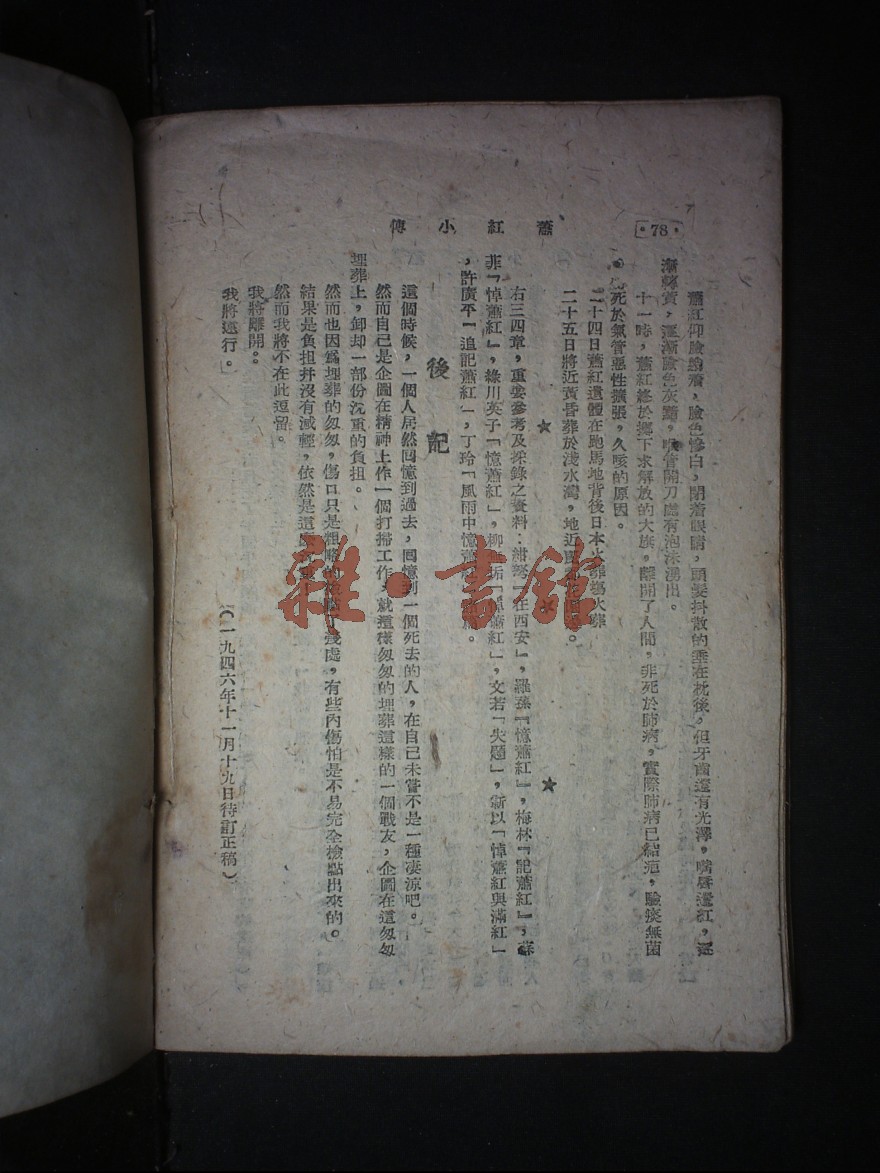 •78•
蕭紅小傳
蕭紅仰臉躺着，臉色慘白，閉着眼睛，頭髮抖散的垂在枕後，但牙齒還有光澤，嘴唇還紅，逐
漸轉黃，逐漸臉色灰黯，喉管開刀處有泡沫湧出。
十一時，蕭紅終於擲下求解放的大旗，離開了人間，非死於肺病，實際肺病已結疤，驗痰無菌
死於氣管惡性擴張，久咳的原因。
二十四日蕭紅遺體在跑馬地背後日本火葬場火葬
二十五日將近黃昏葬於淺水灣，地近
★ ★ ★
右三四章，重要參考及採錄之資料：紺弩「在西安」，羅蓀「憶蕭紅」，梅林「記蕭紅」，蘇
菲「悼蕭紅」，綠川英子「憶蕭紅」，柳「悼蕭紅」，文若「失題」，新以「悼蕭紅與滿紅」
，許廣平「追記蕭紅」，丁玲「風雨中憶蕭。
後記
這個時候，一個人居然回憶到過去，回憶到一個死去的人，在自己未嘗不是一種凄涼吧。
然而自己是企圖在精神上作一個打掃工作，就這樣匆匆的埋葬這樣的一個戰友，企圖在這匆匆
埋葬上，卸却一部份沉重的負担。
然而也因爲埋葬的匆匆，傷口只是粗略的處，有些內傷怕是不易完全檢點出來的。
結果是負担幷沒有減輕，依然是這
然而我將不在此逗留。
我將離開。
我將遠行。
（一九四六年十一月十九日待訂正稿）
雜·書館